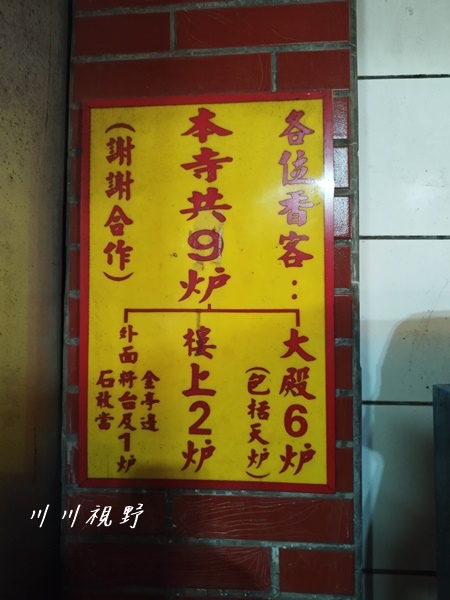 各位香客：
本寺共9炉
（謝謝合作）
大殿6炉
（包括天炉）
樓上2炉
金亭邊
外面將台及1炉
石敢當
川川視野